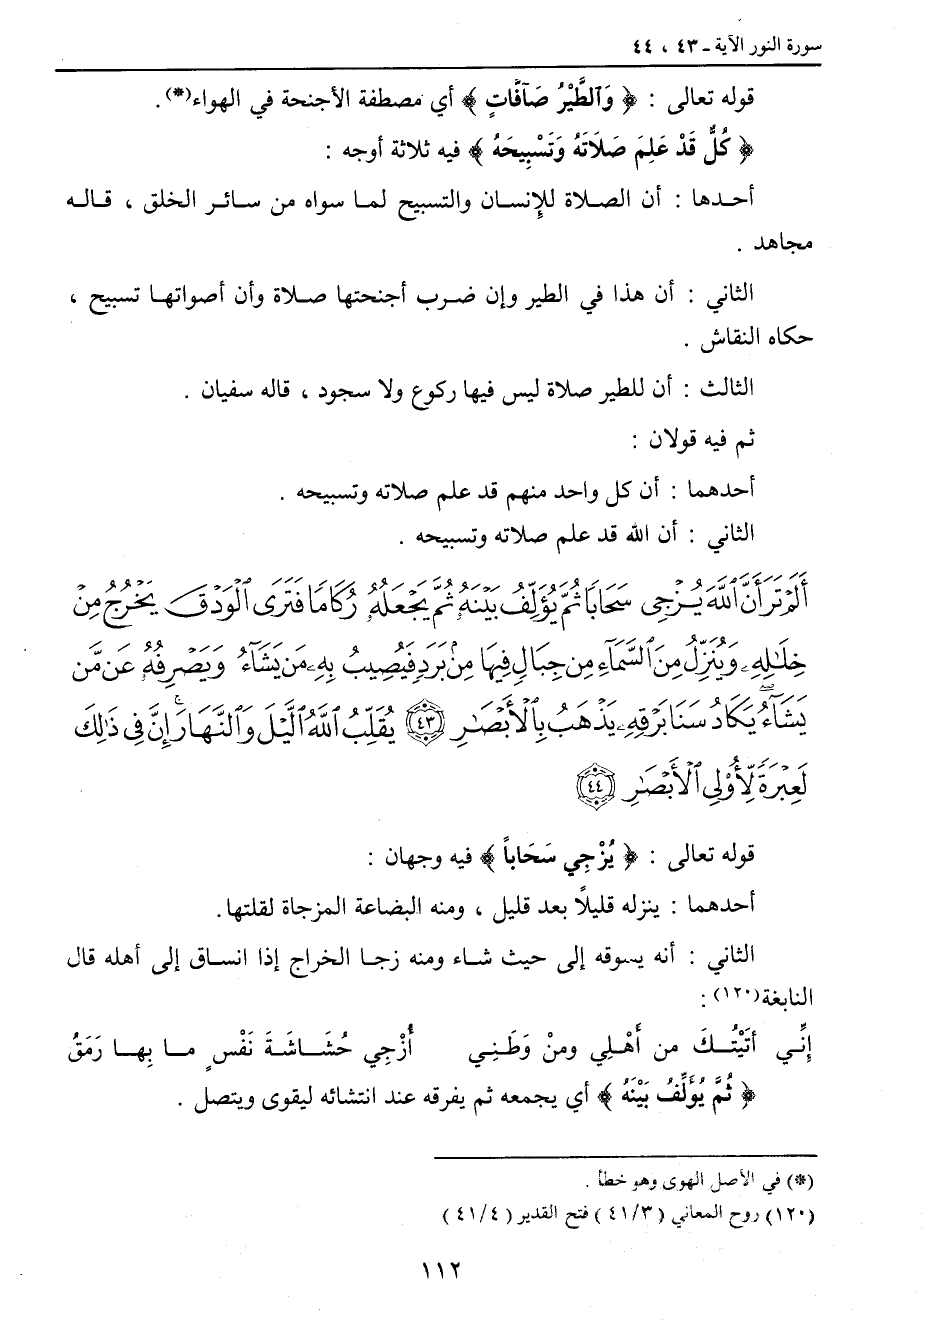 سورة النور الآية ـ ٤٣ ، ٤٤
قوله تعالى : ﴿ وَٱلطَّيْرُ صَآفَّاتٍ ﴾ أي مصطفة الأجنحة في الهواء(*).
﴿ كُلٌّ قَدْ عَلِمَ صَلَاتَهُ وَتَسْبِيحَهُ ﴾ فيه ثلاثة أوجه :
أحدها : أن الصلاة للإنسان والتسبيح لما سواه من سائر الخلق ، قاله
مجاهد .
الثاني : أن هذا في الطير وإن ضرب أجنحتها صلاة وأن أصواتها تسبيح ،
حكاه النقاش .
الثالث : أن للطير صلاة ليس فيها ركوع ولا سجود ، قاله سفيان .
ثم فيه قولان :
أحدهما : أن كل واحد منهم قد علم صلاته وتسبيحه .
الثاني : أن الله قد علم صلاته وتسبيحه .
أَلَمْ تَرَ أَنَّ ٱللَّهَ يُزْجِى سَحَابًا ثُمَّ يُؤَلِّفُ بَيْنَهُۥ ثُمَّ يَجْعَلُهُۥ رُكَامًا فَتَرَى ٱلْوَدْقَ يَخْرُجُ مِنْ
خِلَٰلِهِۦ وَيُنَزِّلُ مِنَ ٱلسَّمَآءِ مِن جِبَالٍ فِيهَا مِنۢ بَرَدٍ فَيُصِيبُ بِهِۦ مَن يَشَآءُ وَيَصْرِفُهُۥ عَن مَّن
يَشَآءُ يَكَادُ سَنَا بَرْقِهِۦ يَذْهَبُ بِٱلْأَبْصَٰرِ ﴿٤٣﴾ يُقَلِّبُ ٱللَّهُ ٱلَّيْلَ وَٱلنَّهَارَ ۚ إِنَّ فِى ذَٰلِكَ
لَعِبْرَةً لِّأُو۟لِى ٱلْأَبْصَٰرِ ﴿٤٤﴾
قوله تعالى : ﴿ يُزْجِي سَحَاباً ﴾ فيه وجهان :
أحدهما : ينزله قليلاً بعد قليل ، ومنه البضاعة المزجاة لقلتها.
الثاني : أنه يسوقه إلى حيث شاء ومنه زجا الخراج إذا انساق إلى أهله قال
النابغة(١٢٠) :
إنِّي أتَيْتُكَ من أَهْلِي ومنْ وَطَنِي أُزْجِي حُشَاشَةَ نَفْسٍ ما بِها رَمَقُ
﴿ ثُمَّ يُؤَلِّفُ بَيْنَهُ ﴾ أي يجمعه ثم يفرقه عند انتشائه ليقوى ويتصل .
(*) في الأصل الهوى وهو خطأ .
(١٢٠) روح المعاني ( ٤١/٣ ) فتح القدير ( ٤١/٤ )
١١٢